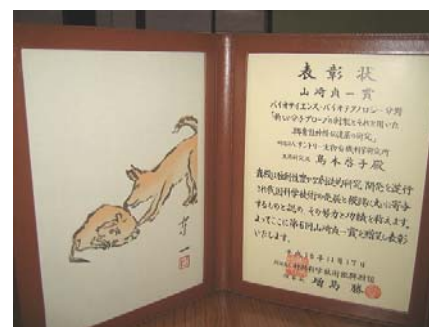 貞一
表彰状
山﨑貞一賞
バイオサイエンス・バイオテクノロジー分野
「新しい分子プローブの創製とそれを用いた
興奮性神経伝達系の研究」
財団法人サントリー生物有機科学研究所
主席研究員 島本啓子殿
貴殿は独創性豊かな創造的研究開発を遂行
され我国科学技術の発展と
するものと認めその努力と功績を称えます
よってここに第6回山﨑貞一賞を贈呈し表彰
いたします。
平成18年11月17日
財団法人材料科学技術振興財団
理事長